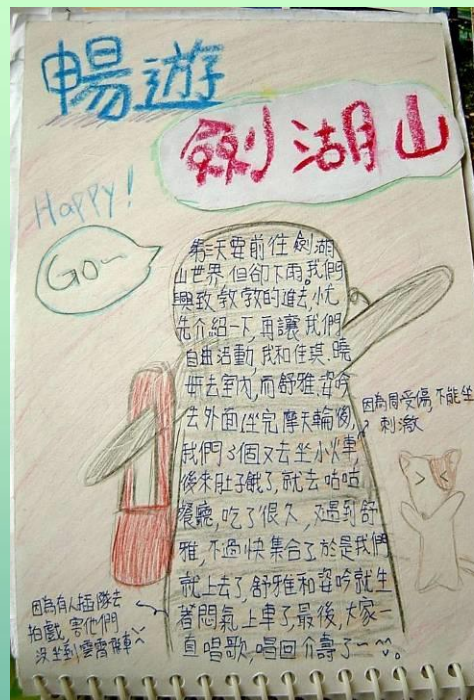 暢遊
劍湖山
Happy!
Go~
第三天要前往劍湖
山世界,但卻下雨。我們
興致敎敎的進去,小尤
先介紹一下,再讓我們
自由活動,我和佳琪、曉
妍去室內,而舒雅、姿吟
去外面,坐完摩天輪後,
我們3個又去坐小火車,
後來肚子餓了,就去咕咕
餐廳,吃了很久,又遇到舒
雅,不過快集合了於是我們
就上去了,舒雅和姿吟就生
著悶氣上車了,最後,大家一
直唱歌,唱回介壽了~~。
因為受傷不能坐
刺激
因為有人插隊去
拍戲,害他們
沒坐到雲霄飛車